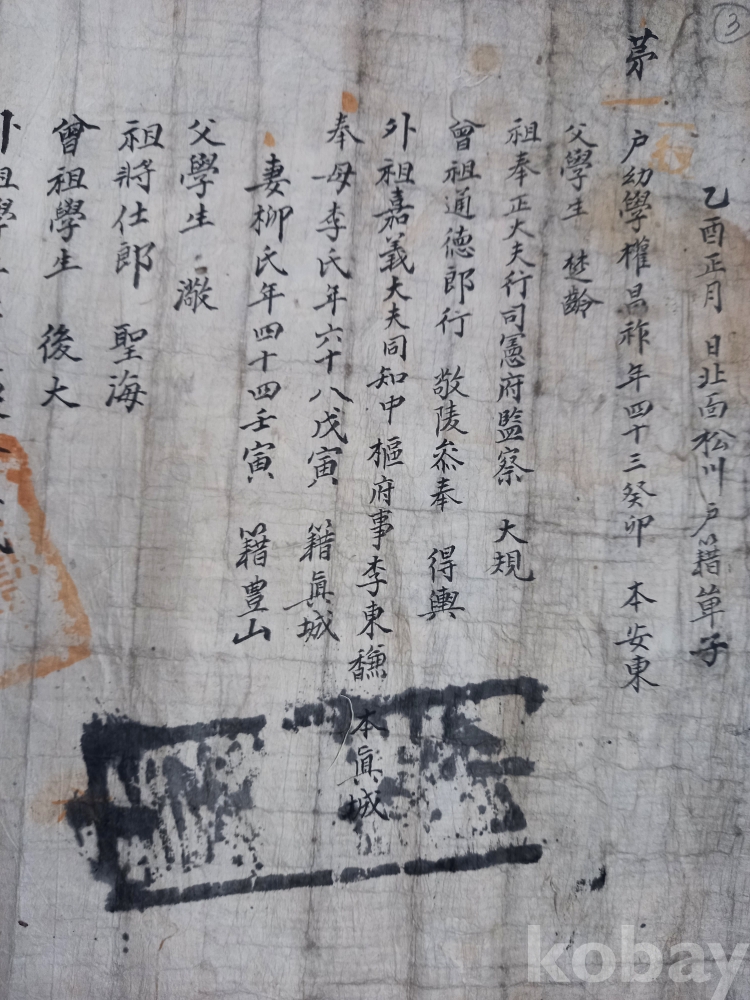 ③
乙酉正月 日北面松川 戶籍單子
茅一 戶幼學權昌祚年四十三癸卯 本安東
父學生 楚齡
祖奉正大夫行司憲府監察 大規
曾祖通德郎行 敬陵叅奉 得輿
外祖嘉義大夫同知中樞府事李東馦 本眞城
奉母李氏年六十八戊寅 籍眞城
妻柳氏年四十四壬寅 籍豊山
父學生 澈
祖將仕郎 聖海
曾祖學生 後大
外祖學
kobay